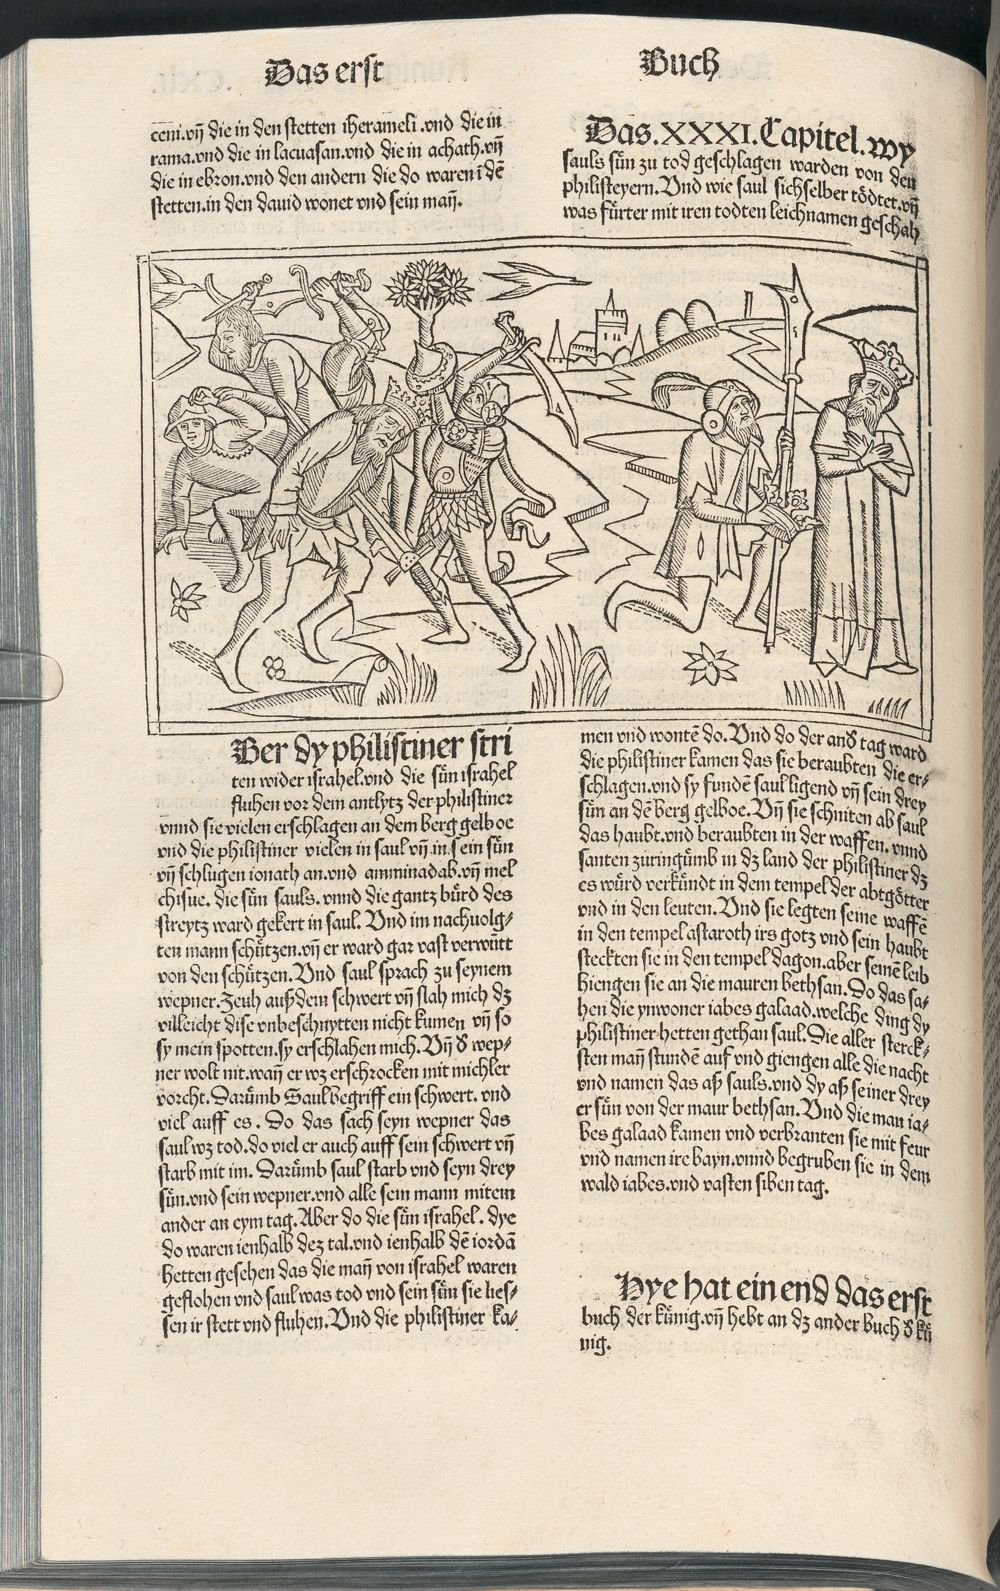 Das erst
Buch
ceni.vñ die in den stetten iherameli.vnd die in
rama.vnd die in lacuasan.vnd die in achath.vñ
die in ebron.vnd den andern die do waren ī dē
stetten.in den dauid wonet vnd sein mañ.
Das.XXXI.Capitel.wy
sauls sün zu tod geschlagen warden von den
philisteyern.Vnd wie saul sichselber tödtet.vñ
was fürter mit iren todten leichnamen geschah
Ber dy philistiner stri
ten wider israhel.vnd die sün israhel
fluhen vor dem antlytz der philistiner
vnnd sie vielen erschlagen an dem berg gelboe
vnd die philistiner vielen in saul vñ.in.sein sün
vñ schlugen ionath an.vnd amminadab.vñ mel
chisue.die sün sauls.vnnd die gantz bürd des
streytz ward gekert in saul.Vnd im nachuolg⸗
ten mann schützen.vñ er ward gar vast verwūtt
von den schützen.Vnd saul sprach zu seynem
wepner.Zeuh außdein schwert vñ slah mich dz
villeicht dise vnbeschnytten nicht kumen vñ so
sy mein spotten.sy erschlahen mich.Vñ d̕ wep⸗
ner wolt nit.wañ er wz erschrocken mit michler
vorcht.Darümb Saul begriff ein schwert.vnd
viel auff es.Do das sach seyn wepner das
saul wz tod.do viel er auch auff sein schwert vñ
starb mit im.Darümb saul starb vnd seyn drey
sün.vnd sein wepner.vnd alle sein mann mitein
ander an eym tag.Aber do die sün israhel.dye
do waren ienhalb dez tal.vnd ienhalb dē iordā
hetten gesehen das die mañ von israhel waren
geflohen vnd saul was tod vnd sein sün sie lies⸗
sen ir stett vnd fluhen.Vnd die philistiner ka⸗
men vnd wontē do.Vnd do der and̕ tag ward
die philistiner kamen das sie beraubten die er⸗
schlagen.vnd sy fundē saul ligend vñ sein drey
sün an dē berg gelboe.Vñ sie schniten ab saul
das haubt.vnd beraubten in der waffen.vnnd
santen züringümb in dz land der philistiner dz
es würd verkündt in dem tempel der abtgötter
vnd in den leuten.Vnd sie legten seine waffē
in den tempel astaroth irs gotz vnd sein haubt
steckten sie in den tempel dagon.aber seinē leib
hiengen sie an die mauren bethsan.Do das sa⸗
hen die ynwoner iabes galaad.welche ding dy
philistiner hetten gethan saul.Die aller sterck⸗
sten mañ stundē auf vnd giengen alle die nacht
vnd namen das aß sauls.vnd dy aß seiner drey
er sün von der maur bethsan.Vnd die man ia⸗
bes galaad kamen vnd verbranten sie mit feur
vnd namen ire bayn.vnnd begruben sie in dem
wald iabes.vnd vasten siben tag.
Hye hat ein end das erst
buch der künig.vñ hebt an dz ander buch d̕ kü
nig.